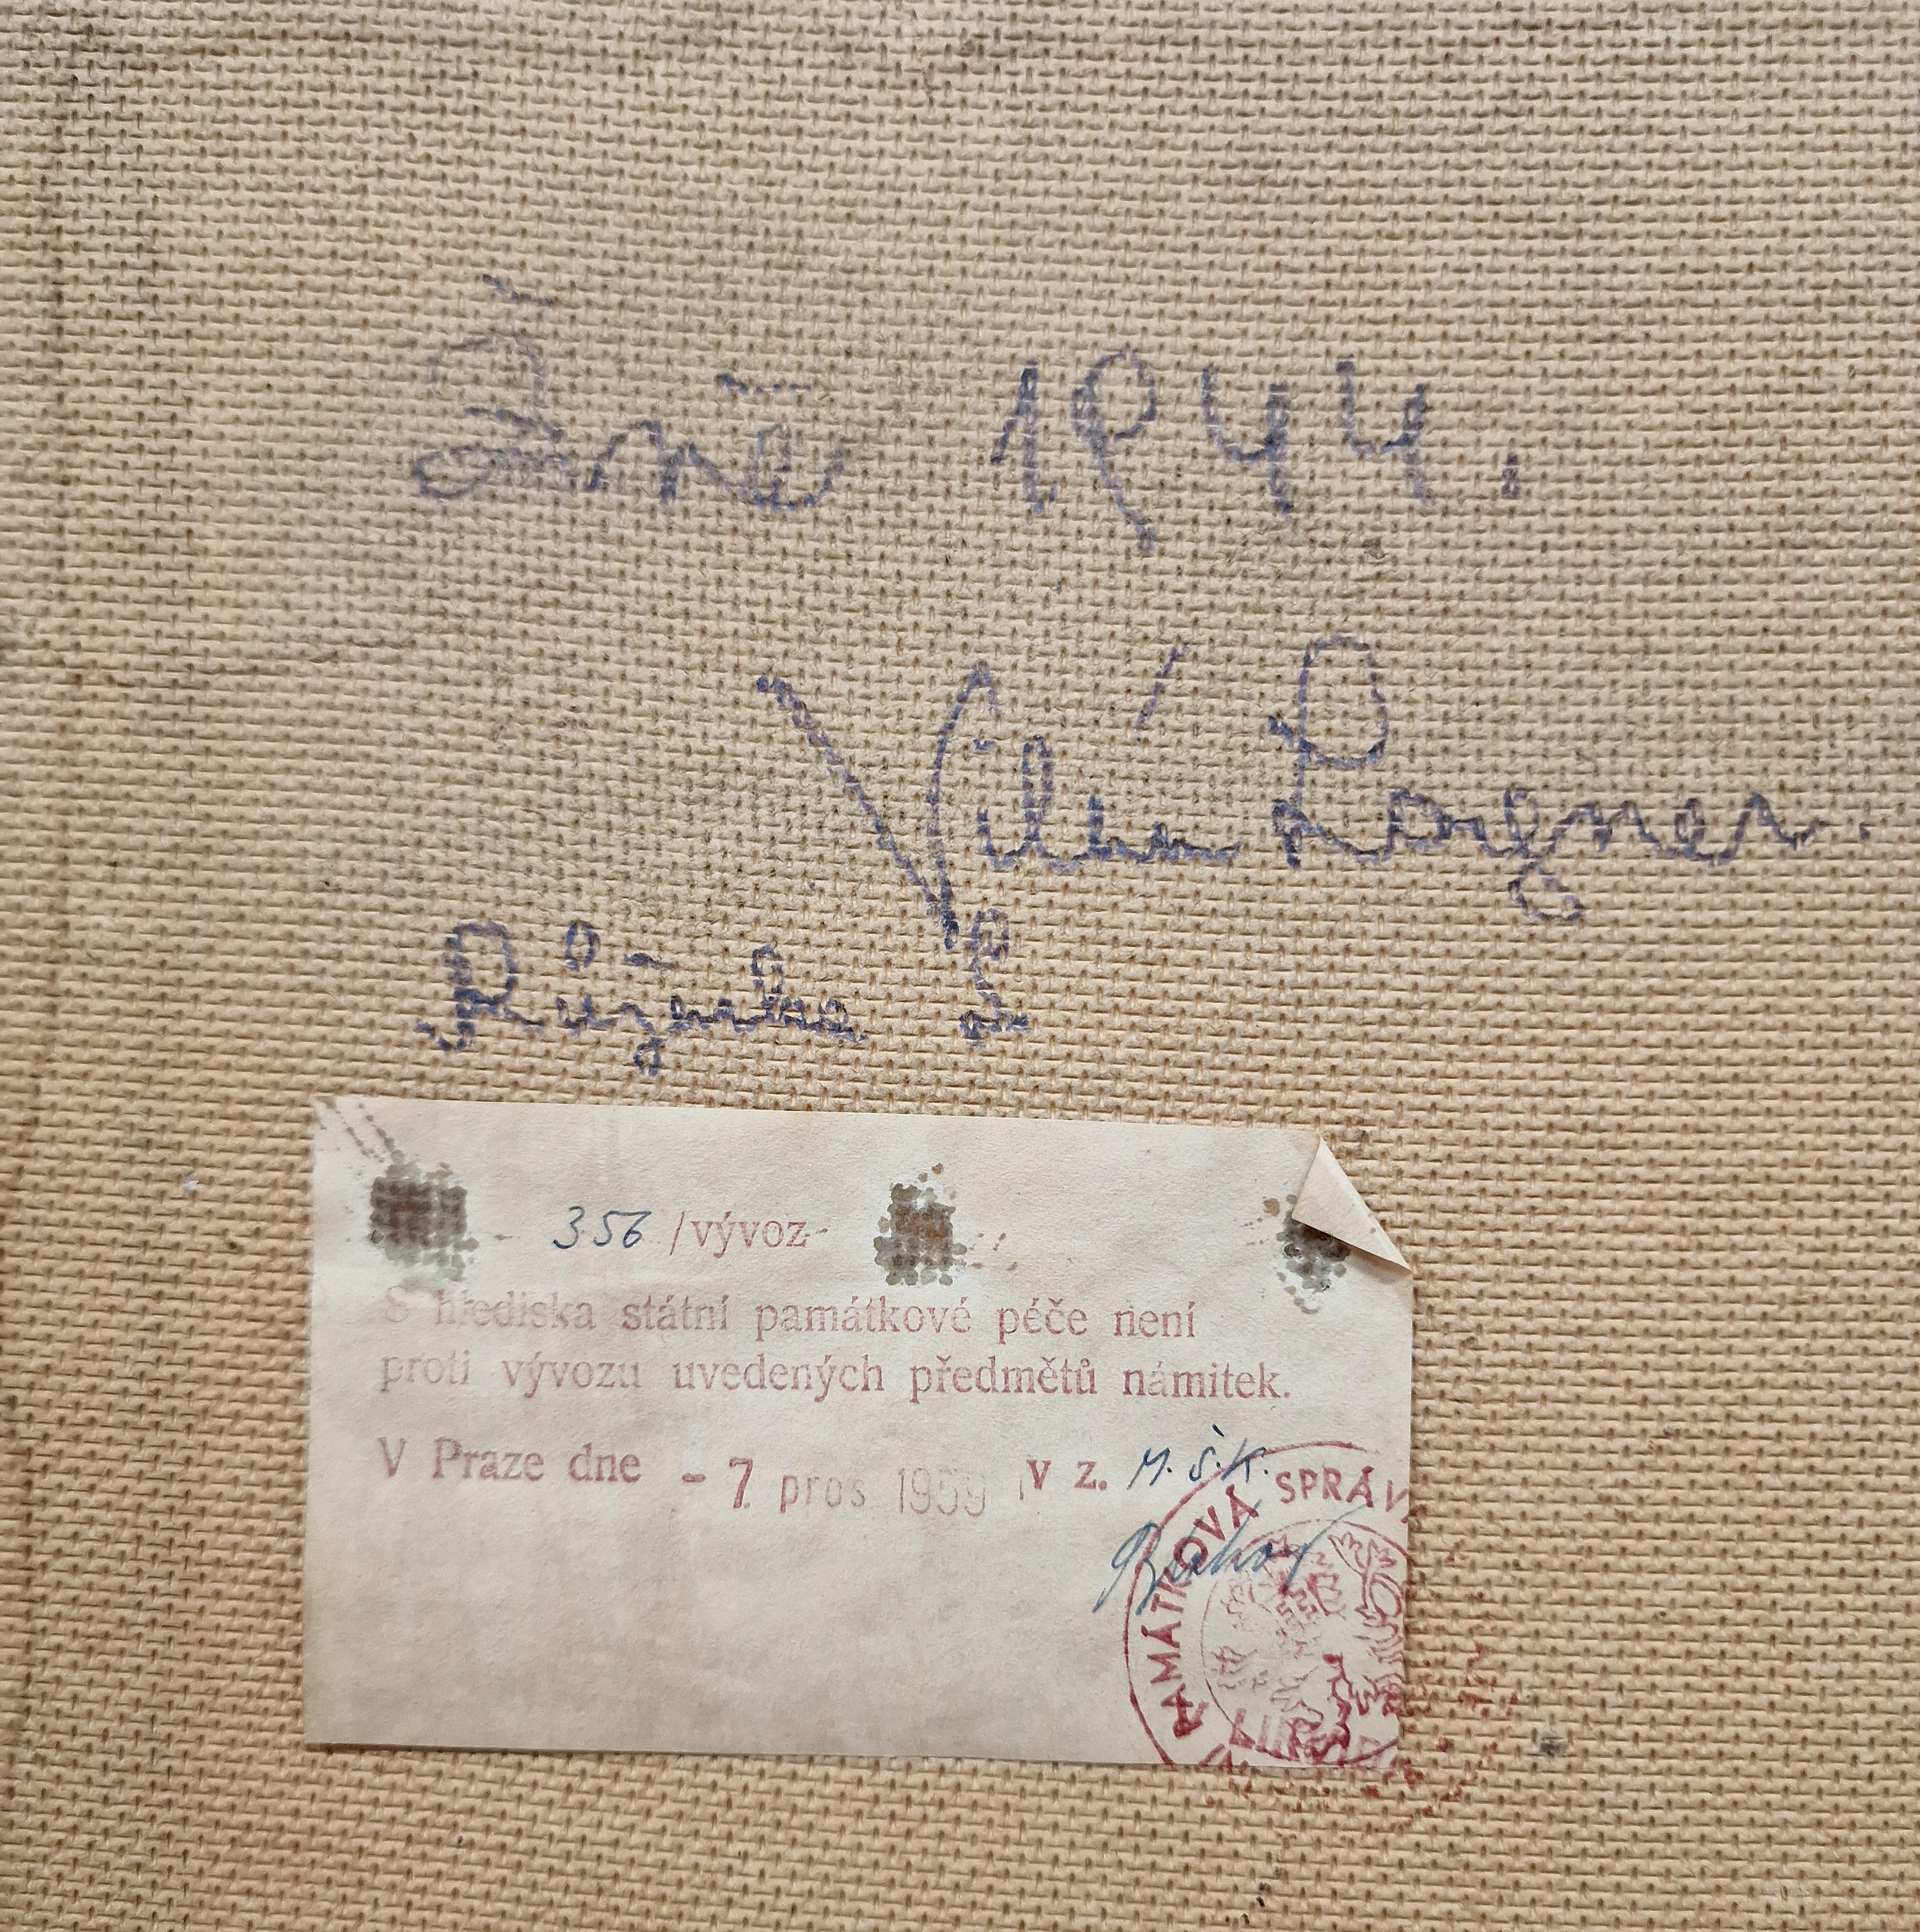 Žně 1944.
Vilém
Růženka
356 /vývoz
S hlediska státní památkové péče není
proti vývozu uvedených předmětů námitek.
V Praze dne - 7 pros 1959 v z. M.Š.K.
PAMÁTKOVÁ SPRÁV